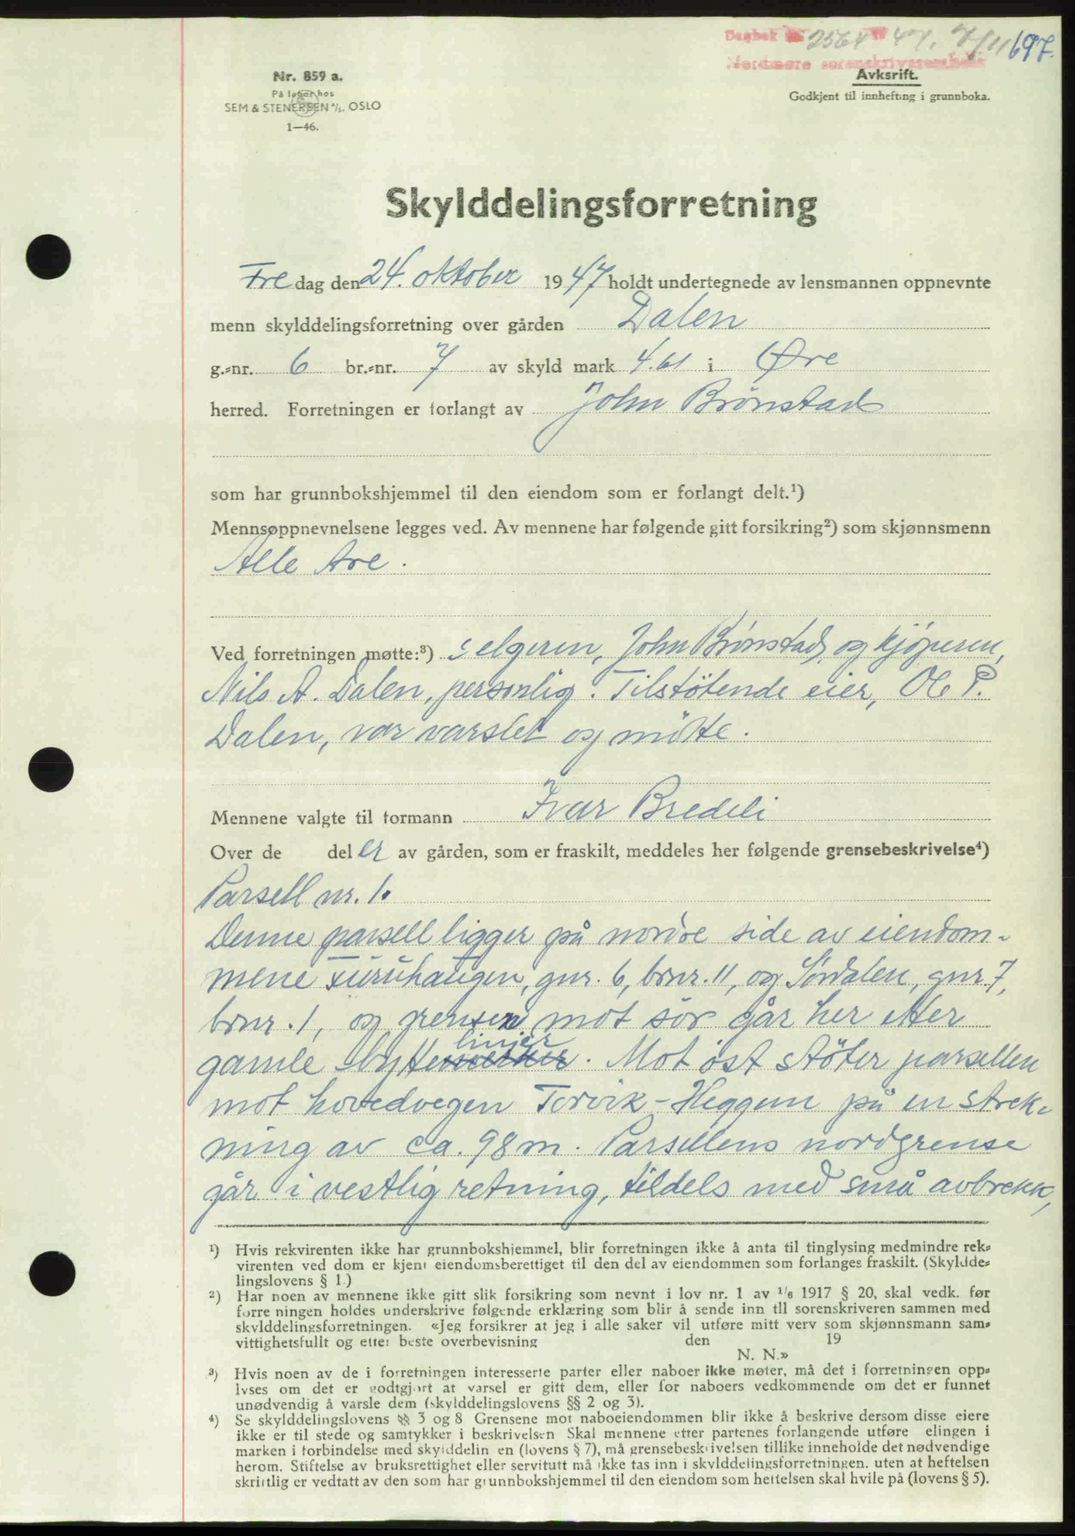 Dagbok nr. 2564 47. 7/11 697.
Nordmøre sorenskriverembede
Nr. 859 a.
På lager hos
SEM & STENERSEN A/S. OSLO
1—46.
Avkskrift.
Godkjent til innhefting i grunnboka.
Skylddelingsforretning
Fredag den 24. oktober 1947 holdt undertegnede av lensmannen oppnevnte
menn skylddelingsforretning over gården Dalen
g.-nr. 6 br.-nr. 7 av skyld mark 4.61 i Øre
herred. Forretningen er forlangt av John Brønstad
som har grunnbokshjemmel til den eiendom som er forlangt delt.¹)
Mennsoppnevnelsene legges ved. Av mennene har følgende gitt forsikring²) som skjønnsmenn
Alle tre.
Ved forretningen møtte:³) selgeren, John Brønstad, og kjøperen,
Nils A. Dalen, personlig. Tilstøtende eier, Ole P.
Dalen, var varslet og møtte.
Mennene valgte til formann Ivar Bredeli
Over de del er av gården, som er fraskilt, meddeles her følgende grensebeskrivelse⁴)
Parsell nr. 1.
Denne parsell ligger på nordre side av eiendom-
mene Furuhaugen, gnr. 6, brnr. 11, og Sørdalen, gnr. 7,
brnr. 1, og grensen mot sør går her etter
linjer
gamle bytte. Mot øst støter parsellen
mot hovedvegen Torvik-Heggem på en strek-
ning av ca. 98 m. Parsellens nordgrense
går i vestlig retning, tildels med små avbrekk,
¹) Hvis rekvirenten ikke har grunnbokshjemmel, blir forretningen ikke å anta til tinglysing medmindre rek-
virenten ved dom er kjent eiendomsberettiget til den del av eiendommen som forlanges fraskilt. (Skyldde-
lingslovens § 1.)
²) Har noen av mennene ikke gitt slik forsikring som nevnt i lov nr. 1 av 1/6 1917 § 20, skal vedk. før
forretningen holdes underskrive følgende erklæring som blir å sende inn til sorenskriveren sammen med
skylddelingsforretningen. «Jeg forsikrer at jeg i alle saker vil utføre mitt verv som skjønnsmann sam-
vittighetsfullt og etter beste overbevisning den 19
N. N.»
³) Hvis noen av de i forretningen interesserte parter eller naboer ikke møter, må det i forretningen opp-
lyses om det er godtgjort at varsel er gitt dem, eller for naboers vedkommende om det er funnet
unødvendig å varsle dem (skylddelingslovens §§ 2 og 3).
⁴) Se skylddelingslovens §§ 3 og 8 Grensene mot naboeiendommen blir ikke å beskrive dersom disse eiere
ikke er til stede og samtykker i beskrivelsen Skal mennene etter partenes forlangende utføre delingen i
marken i forbindelse med skylddelingen (lovens § 7), må grensebeskrivelsen tillike inneholde det nødvendige
herom. Stiftelse av bruksrettighet eller servitutt må ikke tas inn i skylddelingsforretningen. uten at heftelsen
skriftlig er vedtatt av den som har grunnbokshjemmel til den eiendom som heftelsen skal hvile på (lovens § 5).